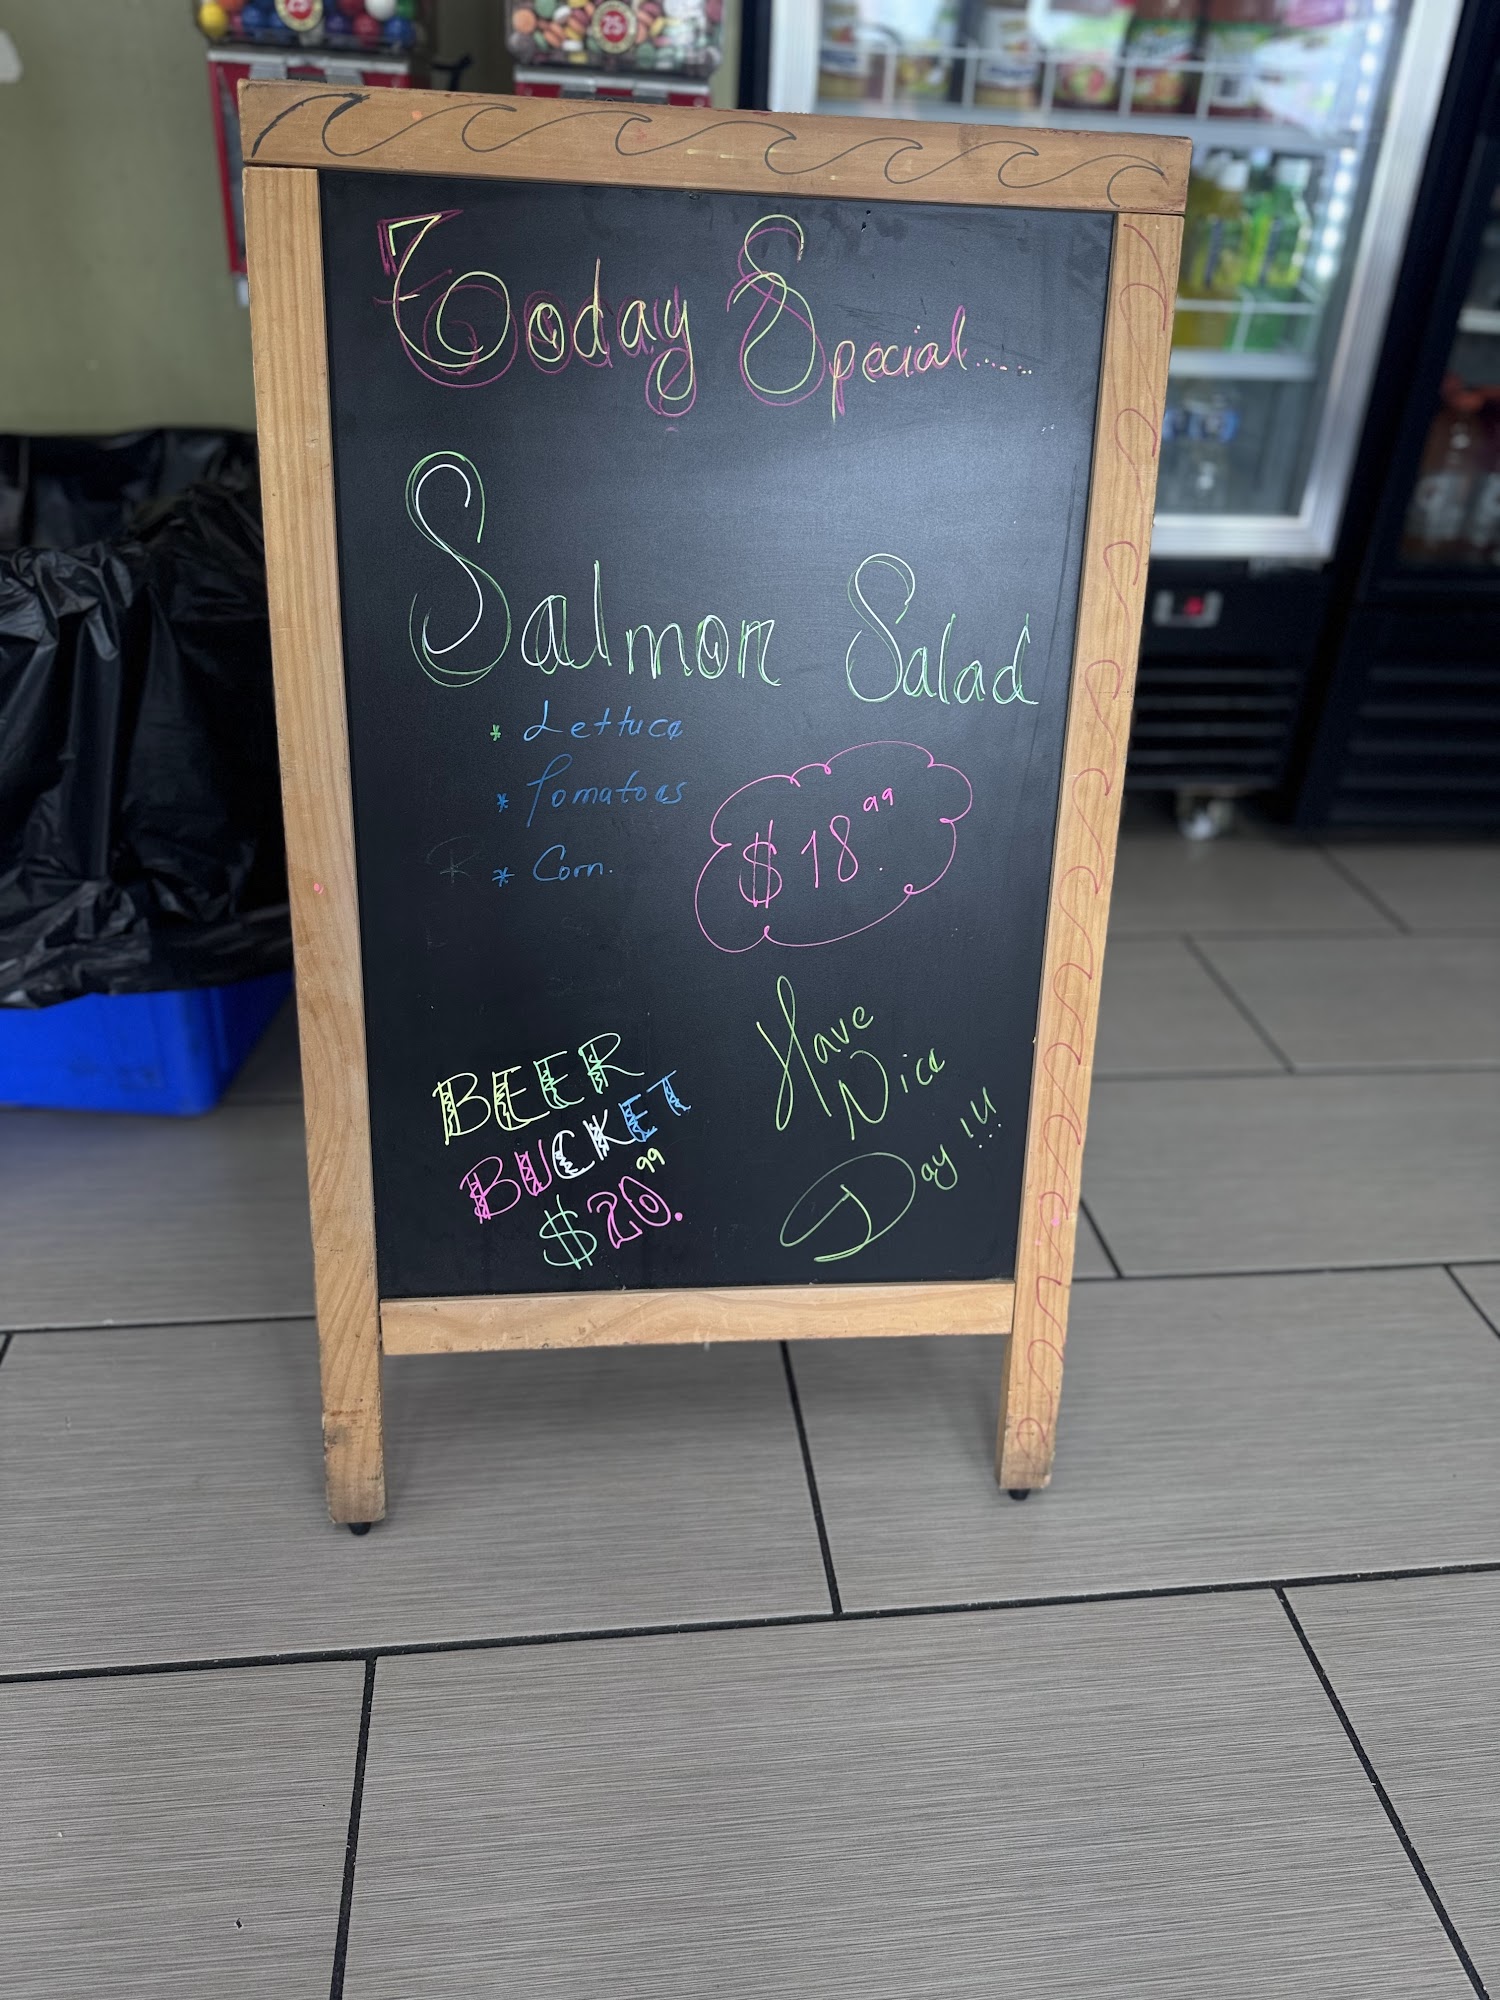 25¢
25¢
Today Special.....
Salmon Salad
* Lettuce
* Tomatoes
* Corn.
$18.99
Have
Nice
Day !!!
BEER
BUCKET
$20.99